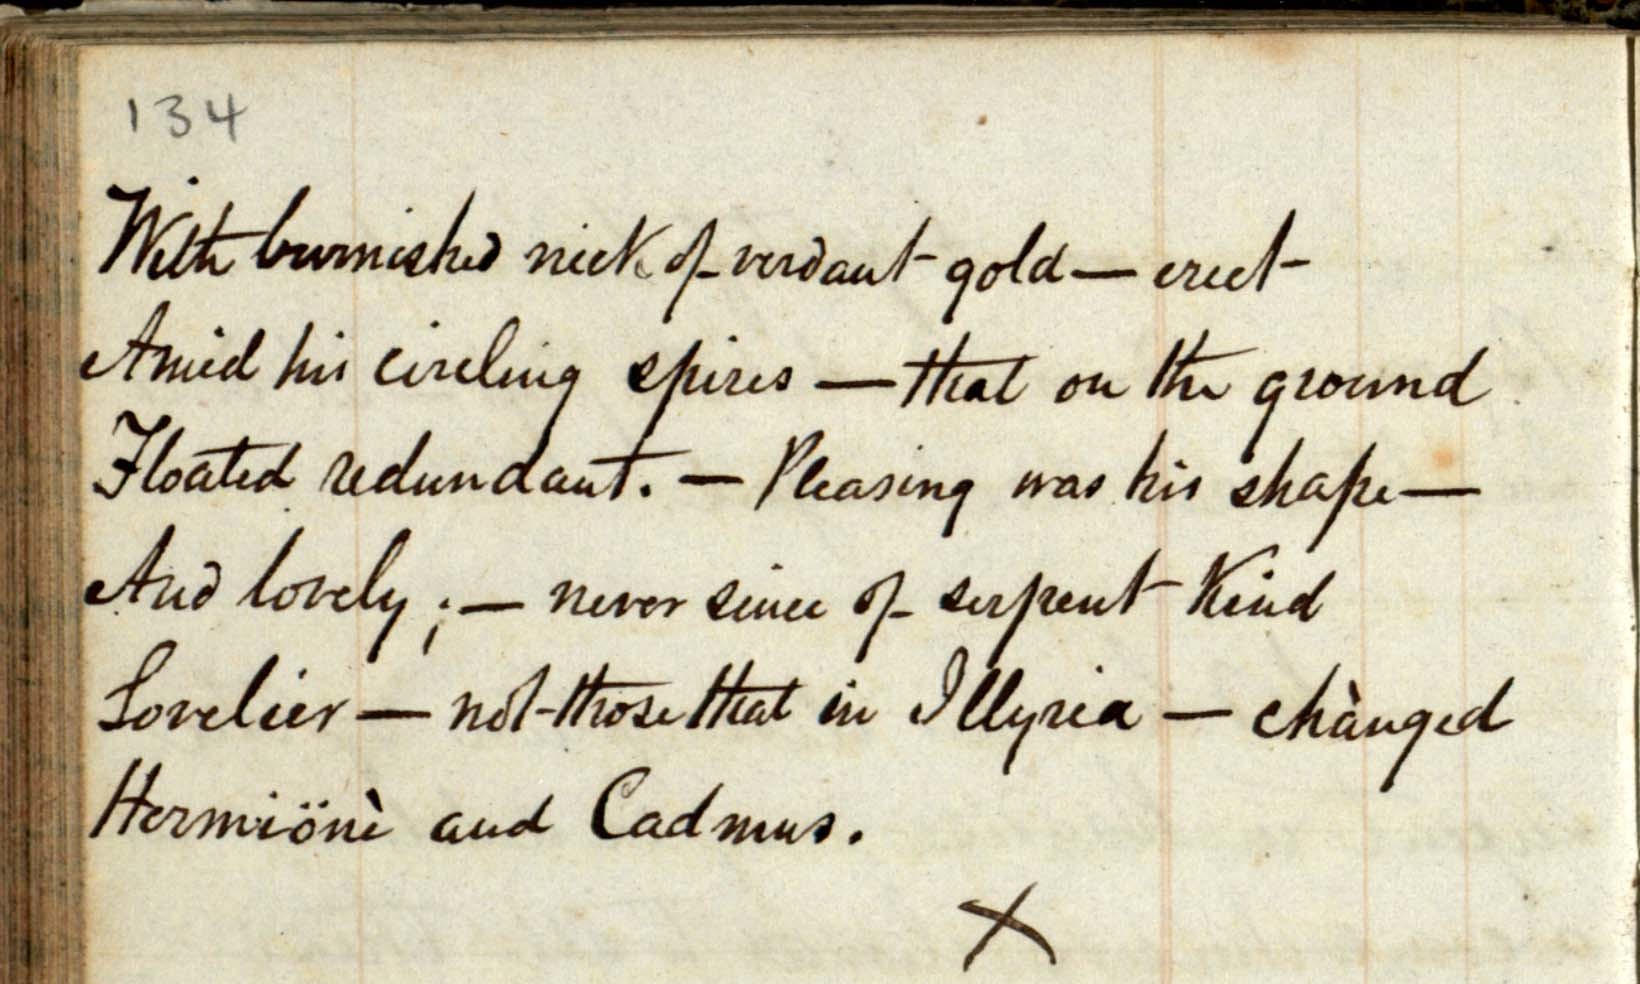 134
With burnished neck of verdant gold — erect
Amid his circling spires — that on the ground
Floated redundant. — Pleasing was his shape —
And lovely ; — never since of serpent Kind
Lovelier — not those that in Illyria — chànged
Hermiönè and Cadmus.
X